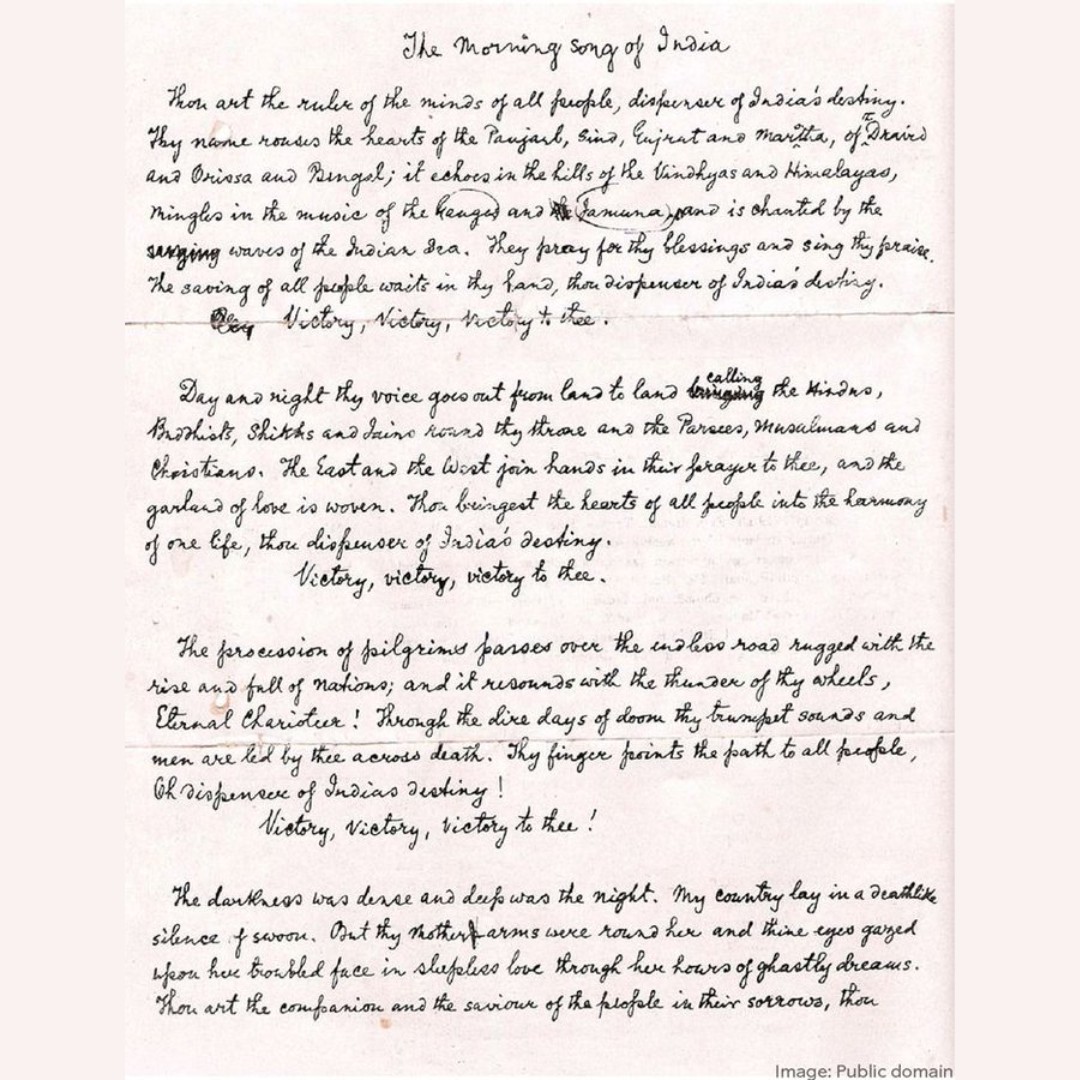 The Morning song of India
Thou art the ruler of the minds of all people, dispenser of India's destiny.
Thy name rouses the hearts of the Panjaub, Sind, Gujrat and Maratha, of Dravid
and Orissa and Bengal; it echoes in the hills of the Vindhyas and Himalayas,
mingles in the music of the Ganges and Jamuna, and is chanted by the
surging waves of the Indian Sea. They pray for thy blessings and sing thy praise.
The saving of all people waits in thy hand, thou dispenser of India's destiny.
Victory, Victory, Victory to thee.
Day and night thy voice goes out from land to land calling the Hindus,
Buddhists, Shikhs and Jains round thy throne and the Parsees, Musalmans and
Christians. The East and the West join hands in their prayer to thee, and the
garland of love is woven. Thou bringest the hearts of all people into the harmony
of one life, thou dispenser of India's destiny.
Victory, victory, victory to thee.
The procession of pilgrims passes over the endless road rugged with the
rise and fall of Nations; and it resounds with the thunder of thy wheels,
Eternal Charioteer! Through the dire days of doom thy trumpet sounds and
men are led by thee across death. Thy finger points the path to all people,
Oh dispenser of Indias destiny!
Victory, Victory, Victory to thee!
The darkness was dense and deep was the night. My country lay in a deathlike
silence of swoon. But thy Mother arms were round her and thine eyes gazed
upon her troubled face in sleepless love through her hours of ghastly dreams.
Thou art the companion and the saviour of the people in their sorrows, thou
Image: Public domain